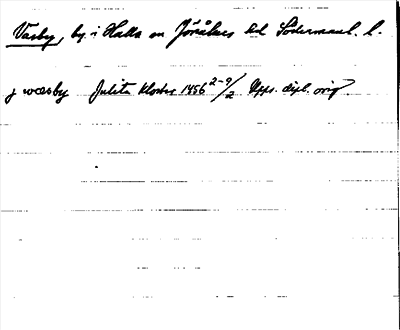 Väsby, by i Halla sn Jönåkers hd Södermanl. l.
j wæsby Julita kloster 1456 2-9/2 Upps. dipl. orig.